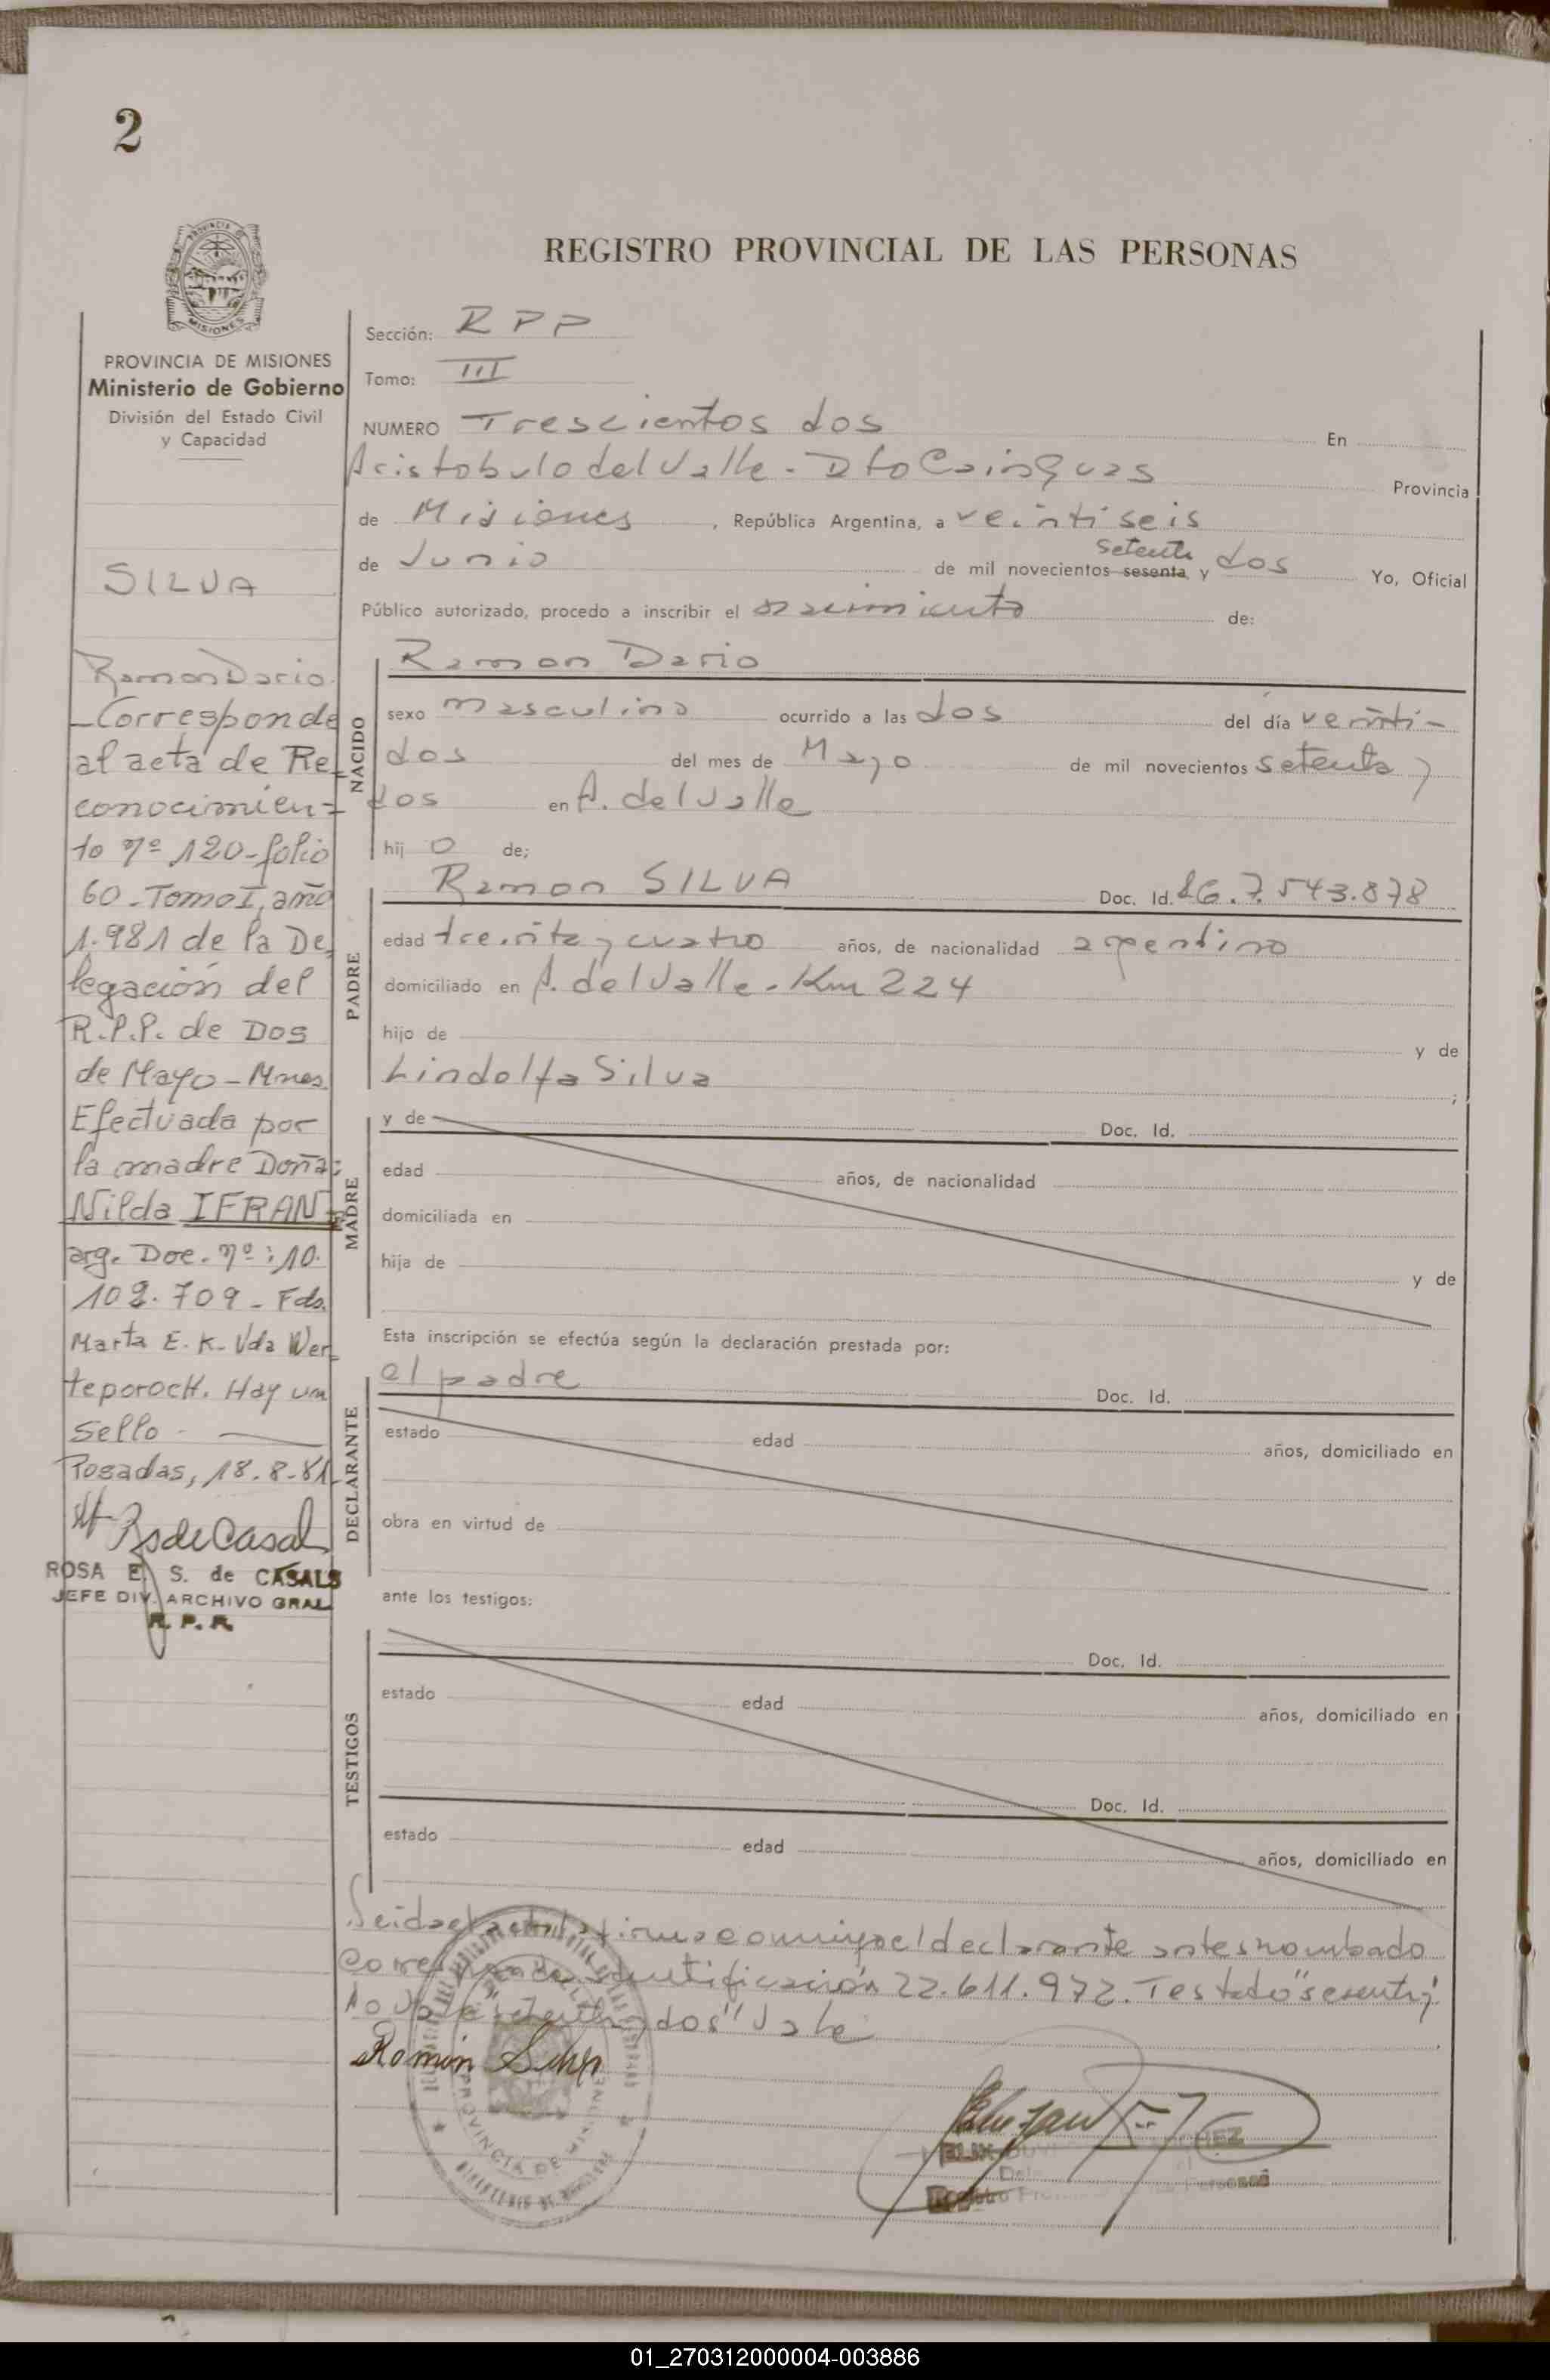 2
PROVINCIA DE MISIONES
MISIONES
PROVINCIA DE MISIONES
Ministerio de Gobierno
División del Estado Civil
y Capacidad
SILVA
Ramon Dario
-Corresponde
al acta de Re-
conocimien-
to nº 120-folio
60-Tomo I, año
1.981 de la De-
legación del
R.P.P. de Dos
de Mayo-Mnes.
Efectuada por
la madre Doña:
Nilda IFRAN-
arg. Doc. nº: 10.
109.709- Fdo.
Marta E. K. Vda Wer-
teporoch. Hay un
Sello -
Posadas, 18-8-81
RsdeCasal
ROSA E. S. de CASALS
JEFE DIV. ARCHIVO GRAL
R. P. P.
REGISTRO PROVINCIAL DE LAS PERSONAS
Sección: RPP
Tomo: III
NUMERO Trescientos dos En
Aristobulo del Valle - Dto Cainguas Provincia
de Misiones, República Argentina, a veintiseis
de Junio de mil novecientos sesenta setenta y dos Yo, Oficial
Público autorizado, procedo a inscribir el nacimiento de:
NACIDO
Ramon Dario
sexo masculino ocurrido a las dos del día veinti-
dos del mes de Mayo de mil novecientos setenta y
dos en A. del Valle
hij o de;
PADRE
Ramon SILVA Doc. Id. 7.543.878
edad treinta y cuatro años, de nacionalidad argentino
domiciliado en A. del Valle - Km 224
hijo de y de
Lindolfa Silva ;
MADRE
y de Doc. Id.
edad años, de nacionalidad
domiciliada en
hija de y de
Esta inscripción se efectúa según la declaración prestada por:
DECLARANTE
el padre Doc. Id.
estado edad años, domiciliado en
obra en virtud de
ante los testigos:
TESTIGOS
Doc. Id.
estado edad años, domiciliado en
Doc. Id.
estado edad años, domiciliado en
Leida el acta la firma conmigo el declarante antes nombrado
identificación 22.611.972. Testado "sesenta y"
no vale "setenta y dos" Vale
Ramón Silva
PROVINCIA DE MISIONES
01_270312000004-003886